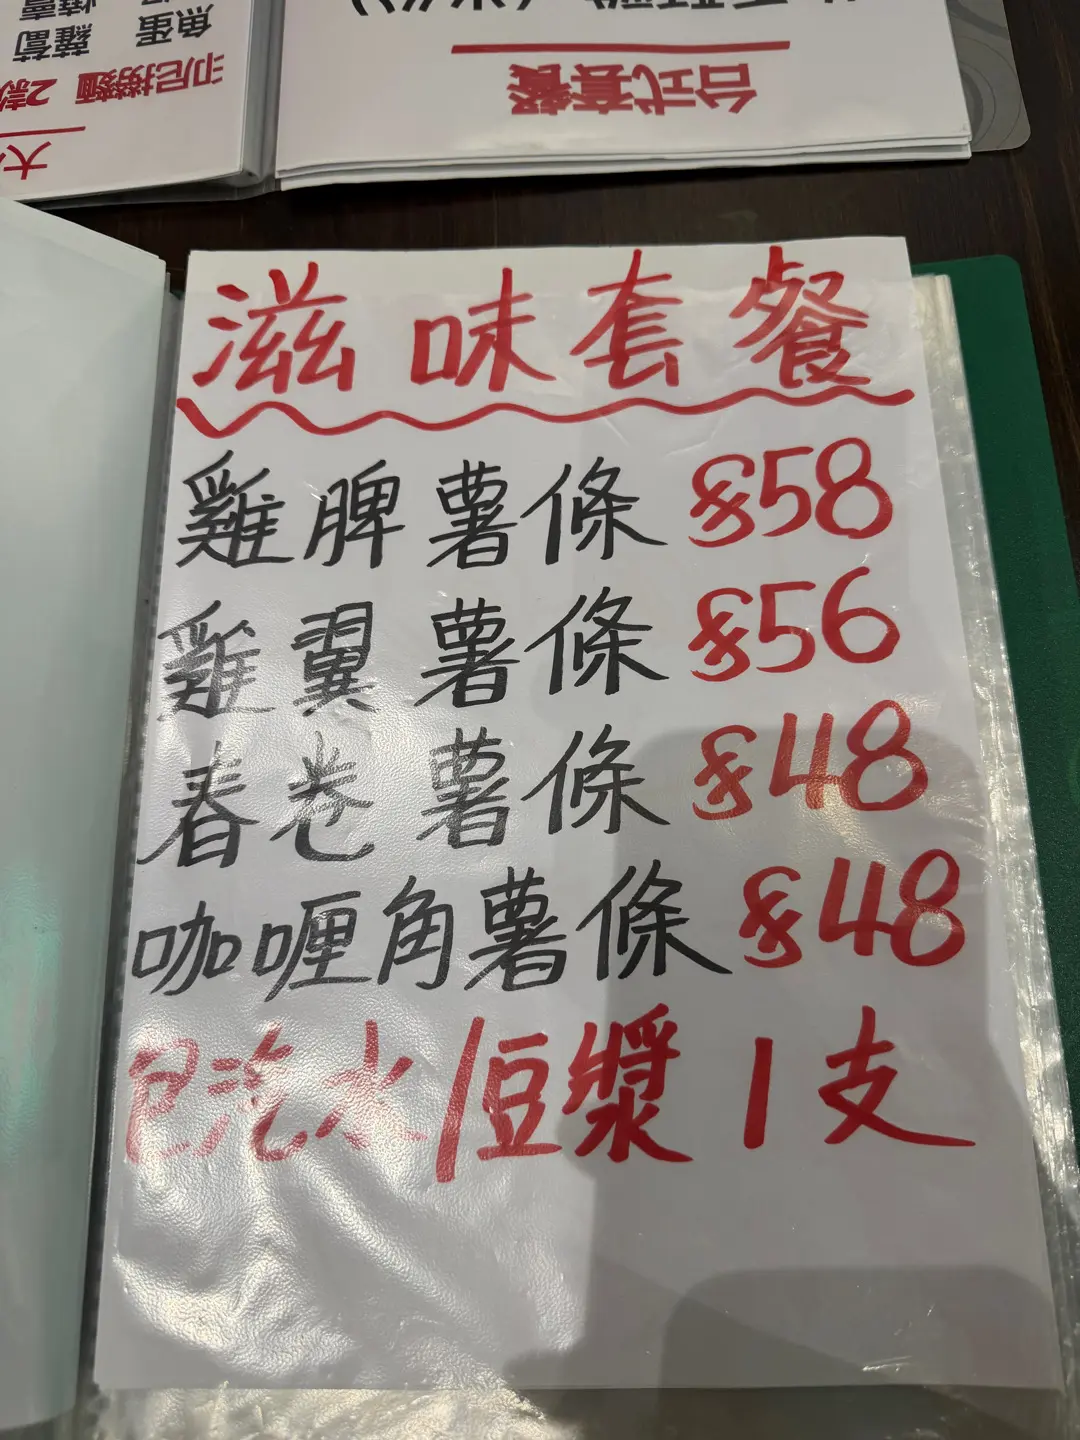 魚蛋 蘿蔔
印尼撈麵 2款
大
台式套餐
滋味套餐
雞脾薯條 $58
雞翼薯條 $56
春卷薯條 $48
咖喱角薯條 $48
包汽水/豆漿1支